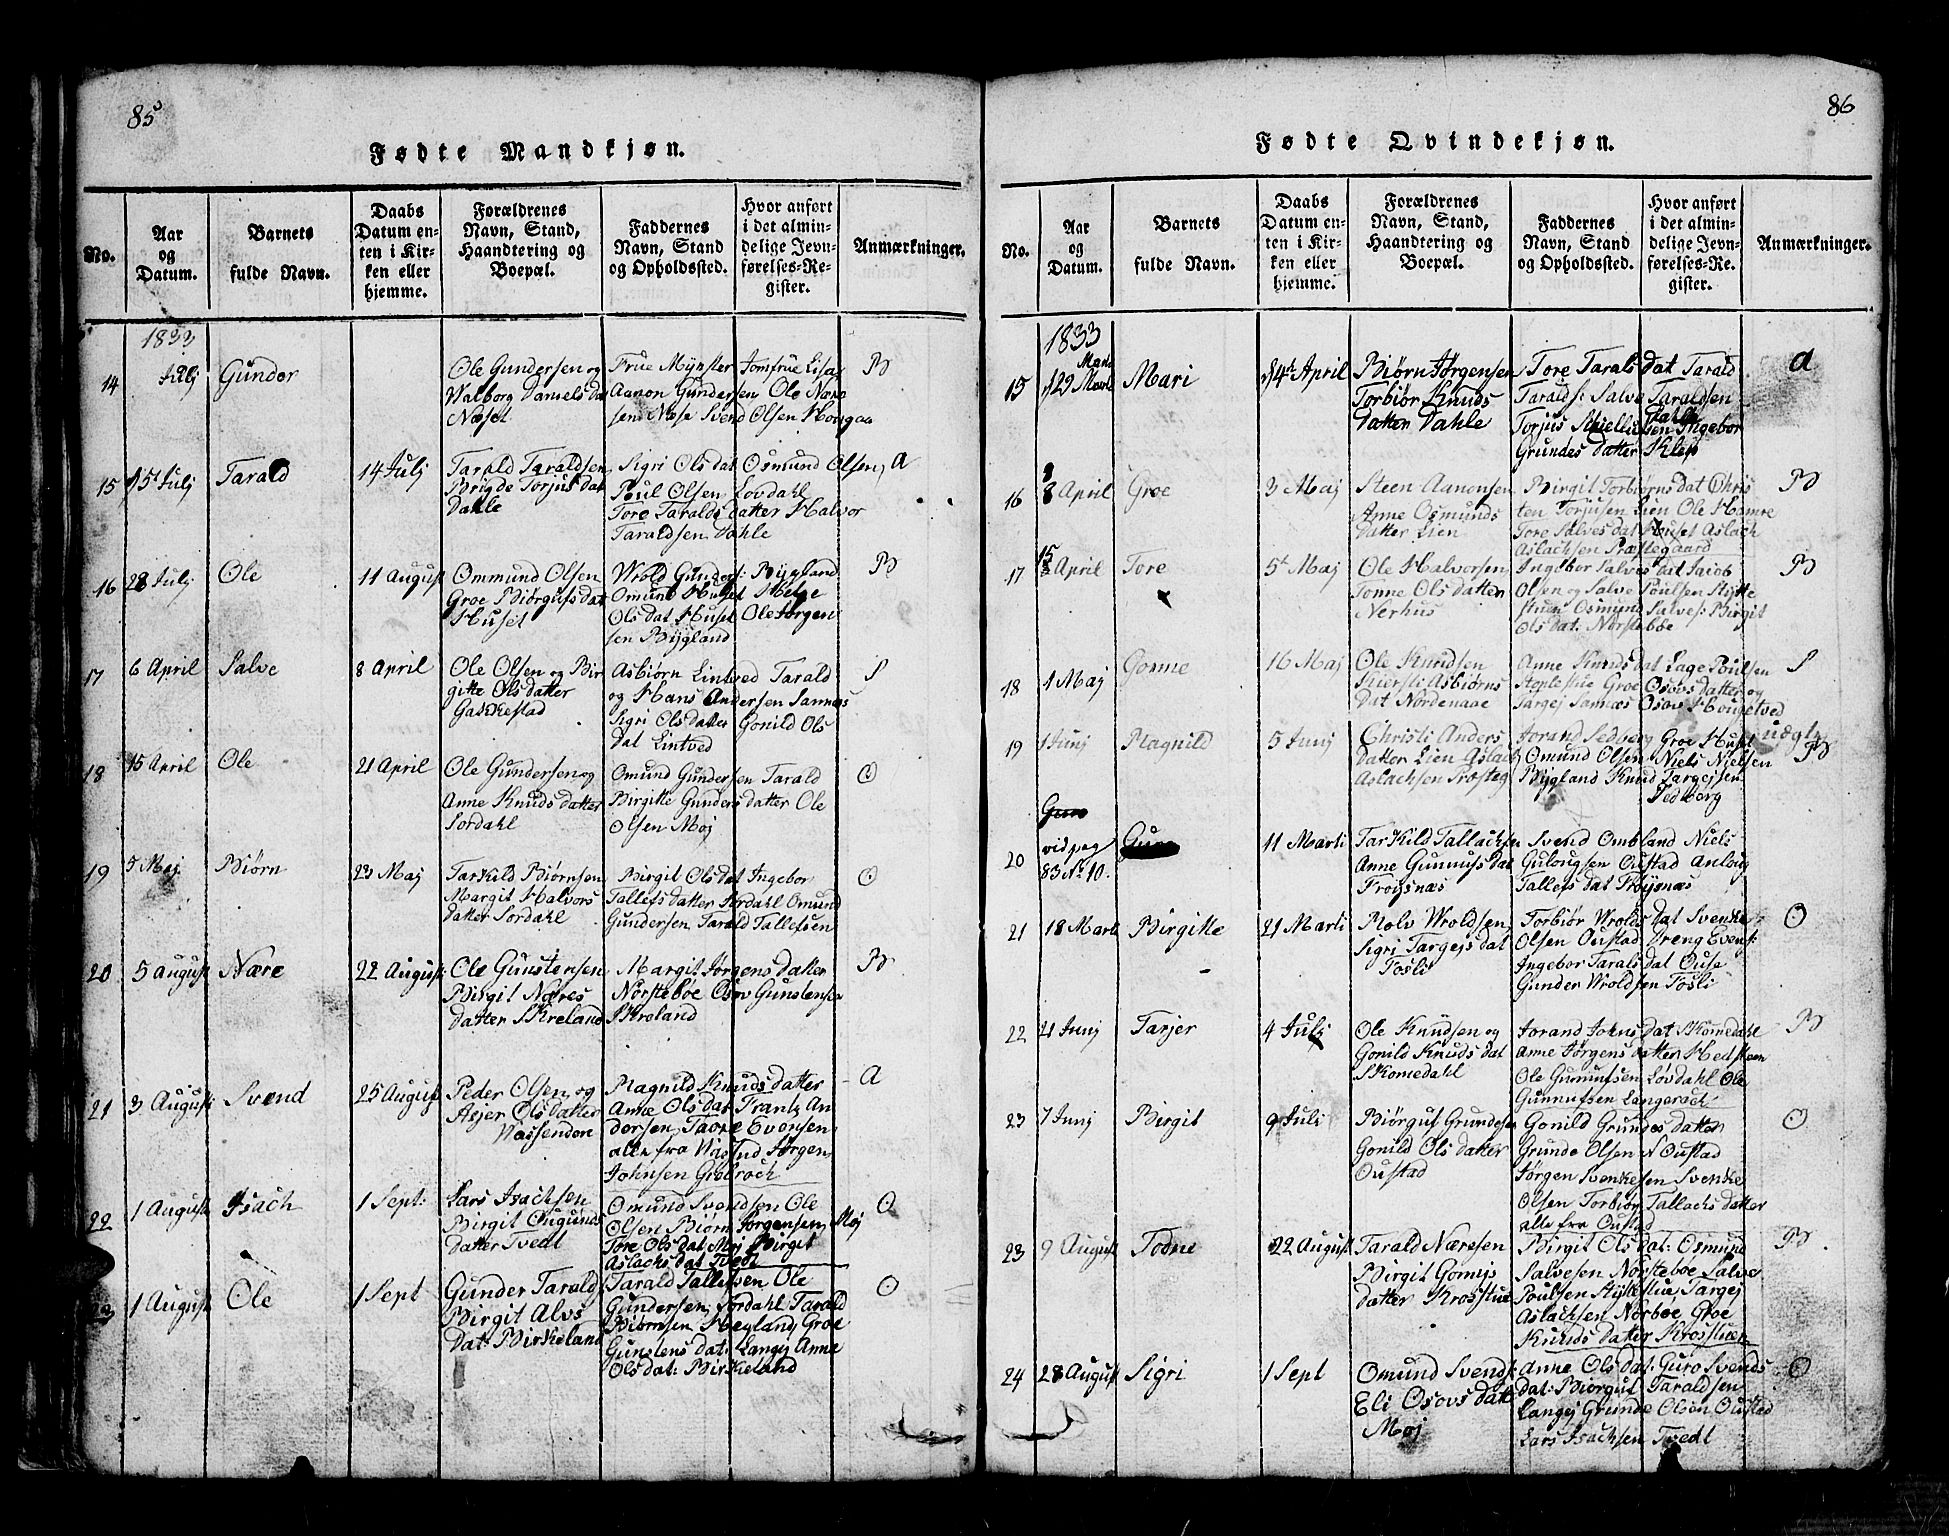 85
Fødte Mandkjøn.
No.
Aar
og
Datum.
Barnets
fulde Navn.
Daabs
Datum en-
ten i Kir-
ken eller
hjemme.
Forældrenes
Navn, Stand,
Haandtering og
Boepæl.
Faddernes
Navn, Stand
og Opholdssted.
Hvor anført
i det almin-
delige Jevn-
førelses-Re-
gister.
Anmærkninger.
1833
14
Julj
Gunder
Ole Gundersen og
Walborg Daniels dat
Næset
Frue Mynster Jomfrue Lisa
Aanon Gundersen Ole
sen Næse Svend Olsen
B
15
5t Julj
Tarald
14 Julj
Tarald Taraldsen
Brigde Torjus dat
Dahle
Sigri Ols dat Osmund Olsen
Poul Olsen Lovdahl
Tore Taralds datter Halvor
Taraldsen Dahle
A
16
28 Julj
Ole
11 August
Ommund Olsen
Groe Biørgufs dat
Huset
Wrold Gunders: Bygland
Omund Huset Helge
Ols dat Huset Ole Jørgen
sen Bygland
B
17
6 April
Salve
8 April
Ole Olsen og Bir
gitte Olsdatter
Gakkestad
Asbiørn Lintved Tarald
og Hans Andersen Samnæs
Sigri Ols datter Gonild Ols
dat Lintved
S
18
15 April
Ole
21 April
Ole Gundersen og
Anne Knuds datter
Sordahl
Omund Gundersen Tarald
Birgitte Gunders datter Ole
Olsen Moj
O
19
5 Maj
Biørn
23 Maj
Tarkild Biørnsen
Margit Halvors
datter Sordahl
Birgit Ols dat Ingebor
Tallefs datter Sordahl Omund
Gundersen Tarald Tallefsen
O
20
5 august
Nære
22 August
Ole Gunstensen
Birgit Næres
datter Skreland
Margit Jørgens datter
Norsteboe Osov Gunstensen
Skreland
B
21
3 August
Svend
25 August
Peder Olsen og
Asjer Ols datter
Wassenden
Magnild Knuds datter
Anne Ols dat Frantz An
dersen Taore Evensen
alle fra Wasend Jørgen
Johnsen
A
22
1 August
Isach
1 Sept:
Lars Isachsen
Birgit Ougunds
datter Tvedt
Omund Svendsen Ole
Olsen Biørn Jorgensen Moj
Tore Ols dat Moj Birgit
Aslachs dat Tvedt
O
23
1 August
Ole
1 Sept
Gunder Tarald
Birgit Alvs
Dat: Birkeland
Tarald Tallefsen Ole
Gundersen Sordahl Tarald
Biørnsen Heyland Groe
Gunstens dat: Langej Anne
Ols dat: Birkeland
O
86
Fødte Qvindekjøn.
No.
Aar
og
Datum.
Barnets
fulde Navn.
Daabs
Datum en-
ten i Kir-
ken eller
hjemme.
Forældrenes
Navn, Stand,
Haandtering og
Boepæl.
Faddernes
Navn, Stand
og Opholdssted.
Hvor anført
i det almin-
delige Jevn-
førelses-Re-
gister.
Anmærkninger.
1833
15
29 Marti
Mari
14t April
Biørn Jørgensen
Torbiør Knuds
datter Dahle
Tore Tarals dat Tarald
Taralds: Salve Taraldsen
Dahle
Torjus Ingebor
Grundes datter Klep
a
16
8 April
Groe
3 Maj
Steen Aanonsen
Anne Osmunds
datter Lien
Birgit Torbiørns dat Chris
ten Torjusen Lien Ole Hamre
Tore Salves dat Huset Aslach
Aslachsen Præstegaard
B
17
15
April
Tore
5t Maj
Ole Halvorsen
Tonne Ols datter
Nerhus
Ingebor Salves dat Jacob
Olsen og Salve Poulsen Stytte
stuen Osmund Salves: Birgit
Ols dat: Norsteboe
B
18
1 Maj
Gonne
16 Maj
Ole Knudsen
Kiersti Asbiørns
dat Nordenaae
Anne Knuds dat Aage Poulsen
Groe Osovs datter og
Targej Samnæs Osov Hougetved
S
19
1 Junj
Magnild
5 Junj
Christi Anders
datter Lien Aslach
Aslachsen Præsteg
Jorand Sedberg Groe Huset
Omund Olsen Niels Nielsen
Bygland Knud Targejsen
Sedberg
uægte
B
20
Guro
vid pag
83 No 10.
11 Marti
Tarkild Tallachsen
Anne Gunnufs dat
Frøysnæs
Svend Ombland Niels
Gulougsen Oustad Anloug
Tallefs dat Frøysnæs
21
18 Marti
Birgitte
21 Marti
Rolv Wroldsen
Sigri Targejs dat
Tosli
Torbiør Wrolds dat Svenke
Olsen Oustad Dreng Evens:
Ingebor Tarals dat Ouse
Gunder Wroldsen Tosli
O
22
21 Junj
Tarjer
4 Julj
Ole Knudsen og
Gonild Knuds dat
Skomedahl
Jorand Johns dat Skomedahl
Anne Jørgens datter
Ole Gunnufsen Løvdahl Ole
Gunnufsen Langerach
B
23
7 Junj
Birgit
9 Juli
Biørguf Grundesen
Gonild Ols datter
Oustad
Gonild Grundes datter
Grunde Olsen N Oustad
Jørgen Svenkesen Svenke
Olsen Torbiør Tallachs datter
alle fra Oustad
O
23
9 August
Todne
22 August
Tarald Næresen
Birgit Gomijs
datter Krosstue
Birgit Ols dat: Osmund
Salvesen Norsteboe Salve
Poulsen Stytestue Targej
Aslachsen Norboe Groe
Knuds datter Krosstuen
B
24
28 August
Sigri
1 Sept
Omund Svends:
Eli Osovs datt
Moj
Anne Ols dat: Guro Svends
dat: Biorguf Taraldsen
Langej Grunde Olsen Oustad
Lars Isachsen Tvedt
O